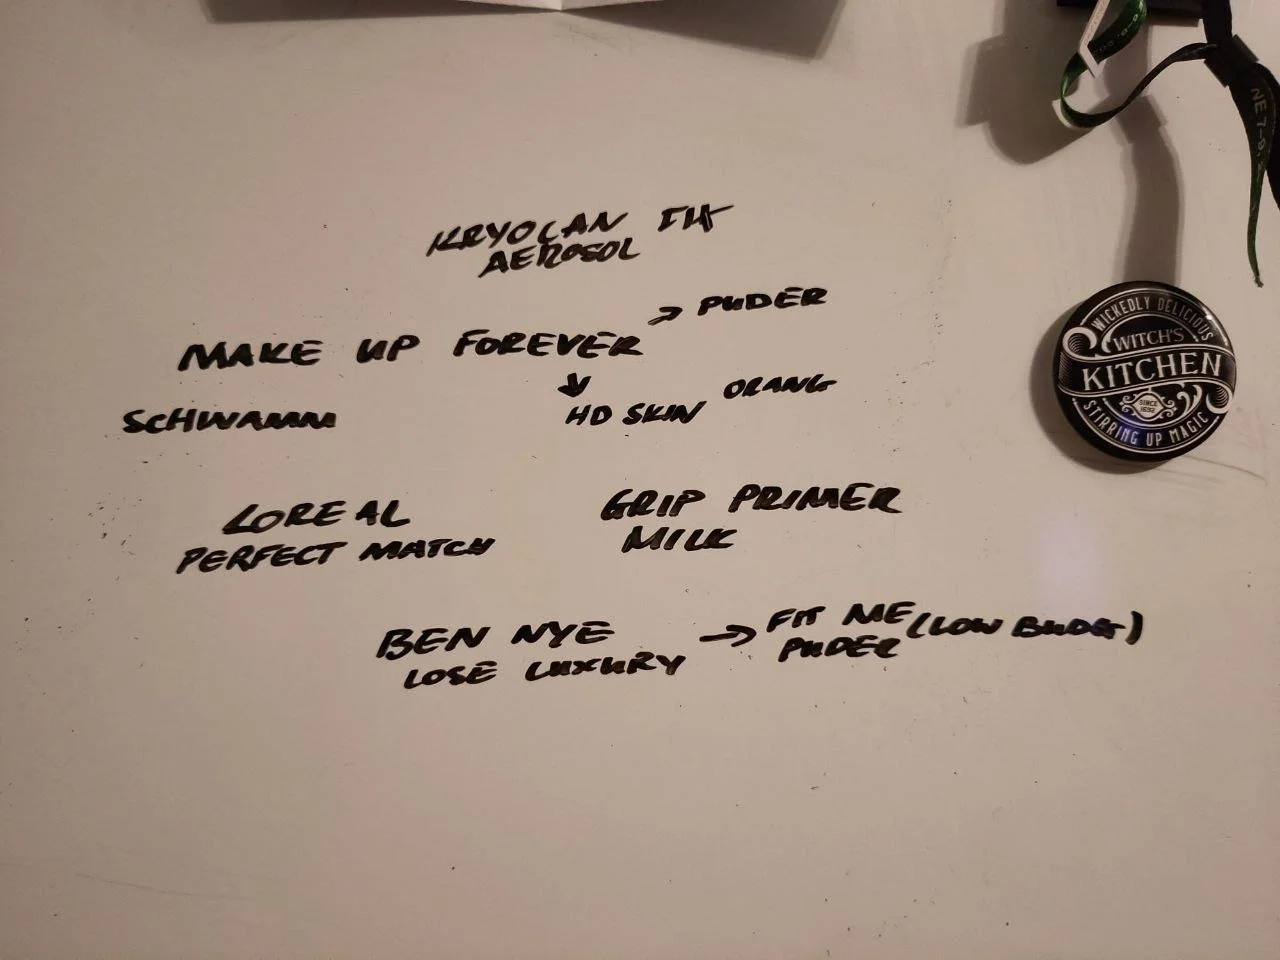 KRYOLAN FIX
AEROSOL
MAKE UP FOREVER → PUDER
↓
HD SKIN ORANG
SCHWAMM
LOREAL
PERFECT MATCH
GRIP PRIMER
MILK
BEN NYE → FIT ME (LOW BUDGET)
LOSE LUXURY PUDER
WICKEDLY DELICIOUS
WITCH'S
KITCHEN
SINCE
1692
STIRRING UP MAGIC